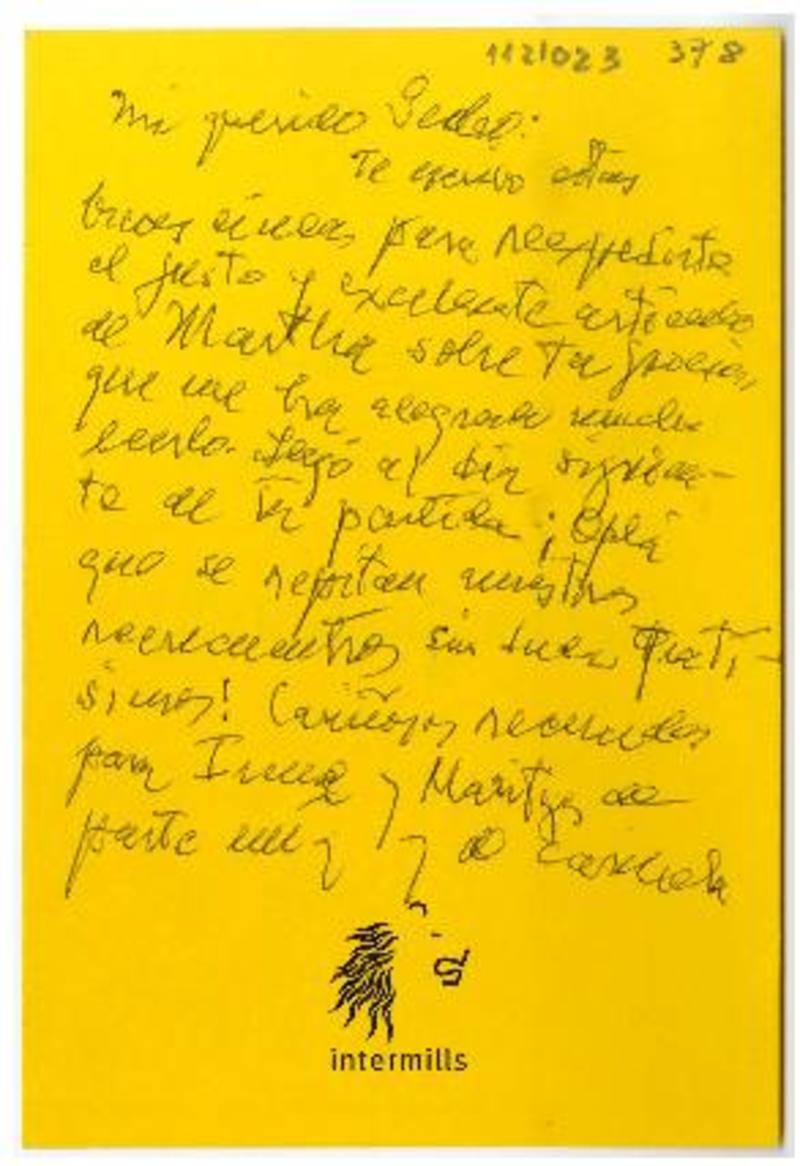 112/023 378
Mi querido Gedel:
Te escribo estas
breves líneas para reexpedirte
el justo y excelente artículo
de Martha sobre tu poesía,
que me ha alegrado mucho
leerlo. Llegó al día siguien-
te de tu partida ¡Ojalá
que se repitan nuestros
reencuentros sin duda gratí-
simos! Cariñosos recuerdos
para Irma y Maritza de
parte mía y de
intermills